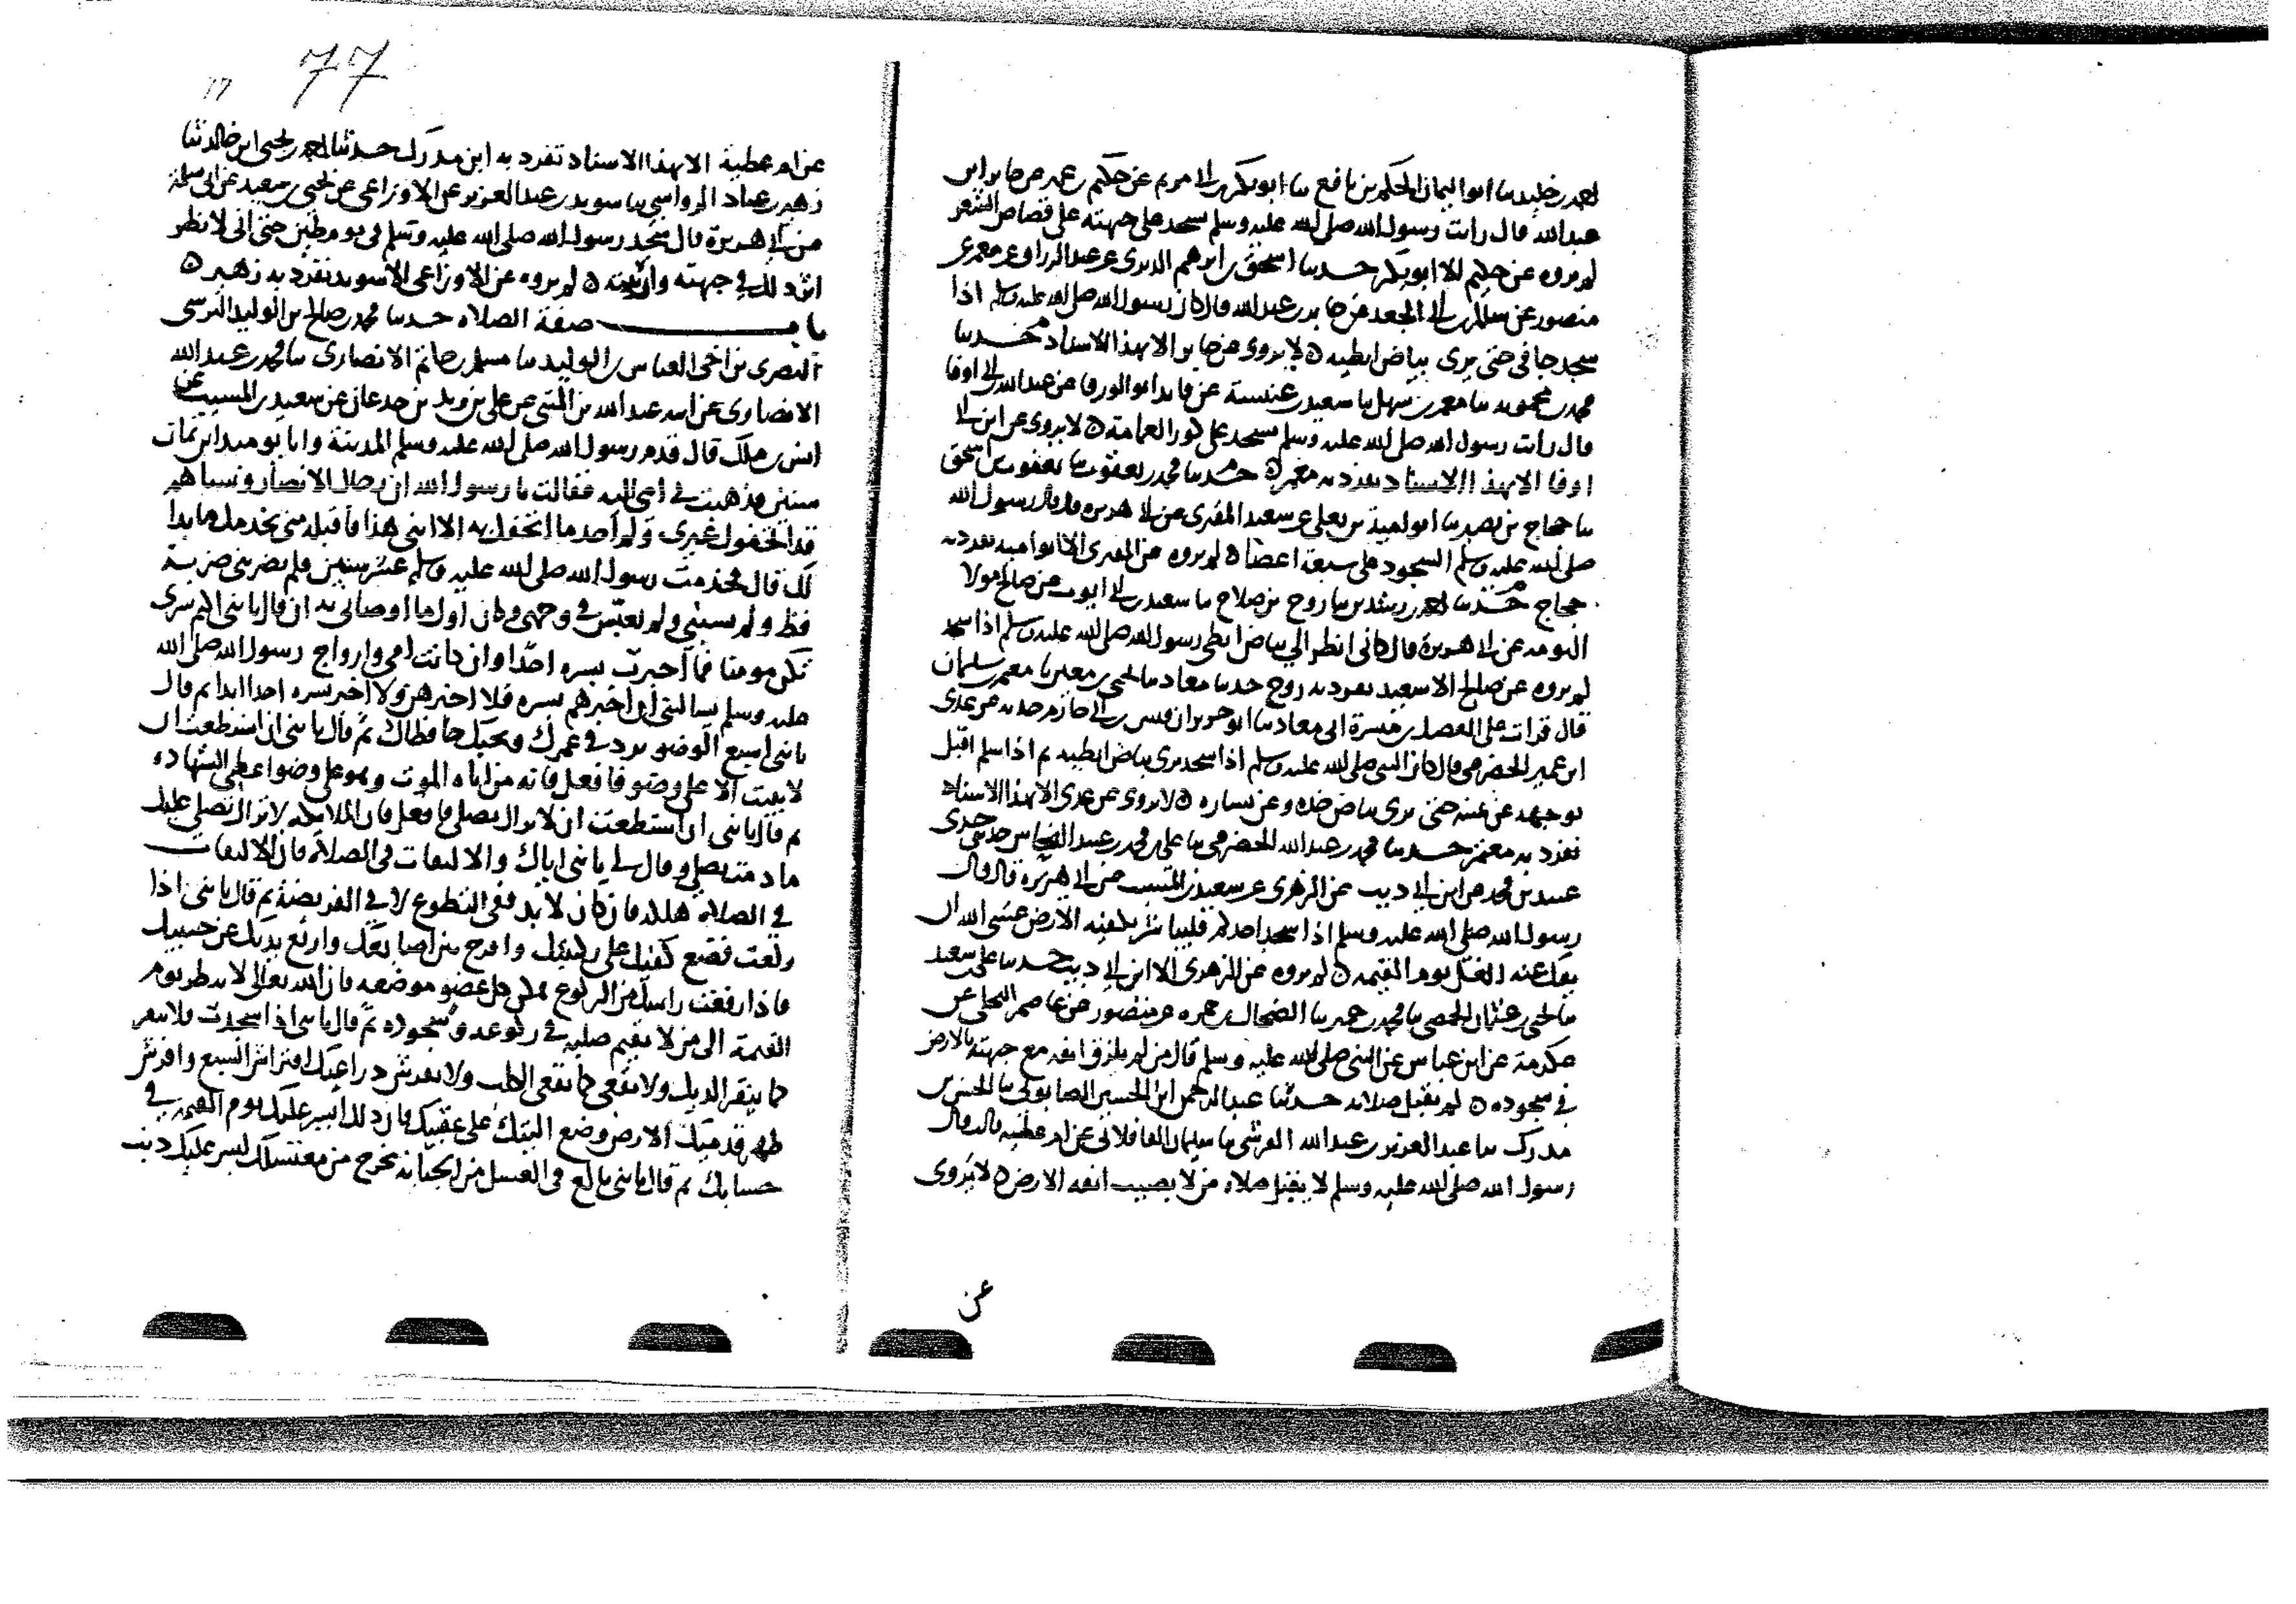 احمد بن خليد ثنا ابو اليمان الحكم بن نافع ثنا ابو بكر بن ابي مريم عن حكيم بن عمير عن جابر ابن
عبد الله قال رايت رسول الله صلى الله عليه وسلم سجد على جبهته على قصاص الشعر
لم يروه عن حكيم الا ابو بكر حدثنا اسحق بن ابرهيم الدبري عن عبد الرزاق عن معمر عن
منصور عن سالم بن ابي الجعد عن جابر بن عبد الله قال كان رسول الله صلى الله عليه وسلم اذا
سجد جافى حتى يرى بياض ابطيه ه لا يروى عن جابر الا بهذا الاسناد حدثنا
محمد بن محمويه ثنا معمر بن سهل ثنا سعيد بن عنبسة عن فايد ابو الورقا عن عبد الله بن ابي اوفا
قال رايت رسول الله صلى الله عليه وسلم يسجد على كور العمامة ه لا يروى عن ابن ابي
اوفا الا بهذا الاسناد تفرد به معمر ه حدثنا محمد بن يعقوب ثنا يعقوب بن اسحق
ثنا حجاج بن نصير ثنا ابو امية بن يعلى عن سعيد المقبري عن ابي هريره قال قال رسول الله
صلى الله عليه وسلم السجود على سبعة اعضا ه لم يروه عن المقبري الا ابو اميه تفرد به
حجاج حدثنا احمد بن رشدين ثنا روح بن صلاح ثنا سعيد بن ابي ايوب عن صالح مولا
التومه عن ابي هريرة قال كاني انظر الى بياض ابطي رسول الله صلى الله عليه وسلم اذا سجد
لم يروه عن صالح الا سعيد تفرد به روح حدثنا معاد ثنا يحيى بن معين ثنا معمر بن سليمان
قال قرات على الفضل بن ميسرة ابي معاد ثنا ابو حريز ان قيس بن ابي حازم حدثه عن عدي
ابن عمير الحضرمي قال كان النبي صلى الله عليه وسلم اذا سجد يرى بياض ابطيه ثم اذا سلم اقبل
بوجهه عن يمينه حتى يرى بياض خده وعن يساره ه لا يروى عن عدي الا بهذا الاسناد
تفرد به معمر حدثنا محمد بن عبد الله الحضرمي ثنا علي بن محمد بن عبيد النحاس حدثني جدي
عبيد بن محمد عن ابن ابي ديب عن الزهري عن سعيد بن المسيب عن ابي هريرة قال قال
رسول الله صلى الله عليه وسلم اذا سجد احدكم فليباشر بكفيه الارض عسى الله ان
يفك عنه الغل يوم القيمه ه لم يروه عن الزهري الا ابن ابي ديب حدثنا علي بن سعيد
ثنا يحيى بن عثمان الحمصي ثنا محمد بن حمير ثنا الضحاك بن حمره عن منصور عن عاصم البجلي عن
عكرمة عن ابن عباس عن النبي صلى الله عليه وسلم قال من لم يلزق انفه مع جبهته بالارض
في سجوده ه لم تقبل صلاته حدثنا عبد الرحمن ابن الحسين الصابوني ثنا الحسن بن
مدرك ثنا عبد العزيز بن عبد الله القرشي ثنا سليمان القافلاني عن ام عطيه قالت قال
رسول الله صلى الله عليه وسلم لا يقبل صلاة من لا يصيب انفه الارض ه لا يروى
عن
77
عن ام عطية الا بهذا الاسناد تفرد به ابن مدرك حدثنا احمد بن يحيى ابن خالد ثنا
زهير بن عباد الرواسي ثنا سويد بن عبد العزيز عن الاوزاعي عن يحيى بن سعيد عن ابي سلمة
عن ابي هريرة قال سجد رسول الله صلى الله عليه وسلم في يوم مطير حتى اني لانظر
اثر ذلك في جبهته وارنبته ه لم يروه عن الاوزاعي الا سويد تفرد به زهير ه
باب صفة الصلاه حدثنا محمد بن صالح بن الوليد النرسي
البصري بن اخي العباس بن الوليد ثنا مسلم بن حاتم الانصاري ثنا محمد بن عبد الله
الانصاري عن ابيه عبد الله بن المثنى عن علي بن زيد بن جدعان عن سعيد بن المسيب عن
انس بن ملك قال قدم رسول الله صلى الله عليه وسلم المدينة وانا يوميد ابن ثمان
سنين فذهبت بي امي اليه فقالت يا رسول الله ان رجال الانصار ونساهم
قد اتحفوك غيري ولم اجد ما اتحفك به الا ابني هذا فاقبله مني يخدمك ما بدا
لك قال فخدمت رسول الله صلى الله عليه وسلم عشر سنين فلم يضربني ضربة
قط ولم يسبني ولم يعبس في وجهي وكان اول ما اوصاني به ان قال يا بني اكتم سري
تكن مومنا فما اخبرت بسره احدا وان كانت امي وازواج رسول الله صلى الله
عليه وسلم يسالنني ان اخبرهم بسره فلا اخبرهن ولا اخبر بسره احدا ابدا ثم قال
يا بني اسبغ الوضو يزد في عمرك ويحبك حافظاك ثم قال يا بني ان استطعت ان
لا تبيت الا على وضو فافعل فانه من اتاه الموت وهو على وضو اعطي الشهاده
ثم قال يا بني ان استطعت ان لا تزال تصلي فافعل فان الملايكه لا تزال تصلي عليك
ما دمت تصلي وقال لي يا بني اياك والالتفات في الصلاة فان الالتفات
في الصلاة هلكه فان كان لا بد ففي التطوع لا في الفريضة ثم قال يا بني اذا
ركعت فضع كفيك على ركبتيك وافرج بين اصابعك وارفع يديك عن جنبيك
فاذا رفعت راسك من الركوع فمكن كل عضو موضعه فان الله تعالى لا ينظر يوم
القيمة الى من لا يقيم صلبه في ركوعه وسجوده ثم قال يا بني اذا سجدت فلا تنقر
كما ينقر الديك ولا تقعي كما يقعي الكلب ولا تفترش دراعيك افتراش السبع وافرش
ظهر قدميك الارض وضع اليتيك على عقبيك فان ذلك ايسر عليك يوم القيمه في
حسابك ثم قال يا بني بالغ في الغسل من الجنابه تخرج من مغتسلك ليس عليك ذنب